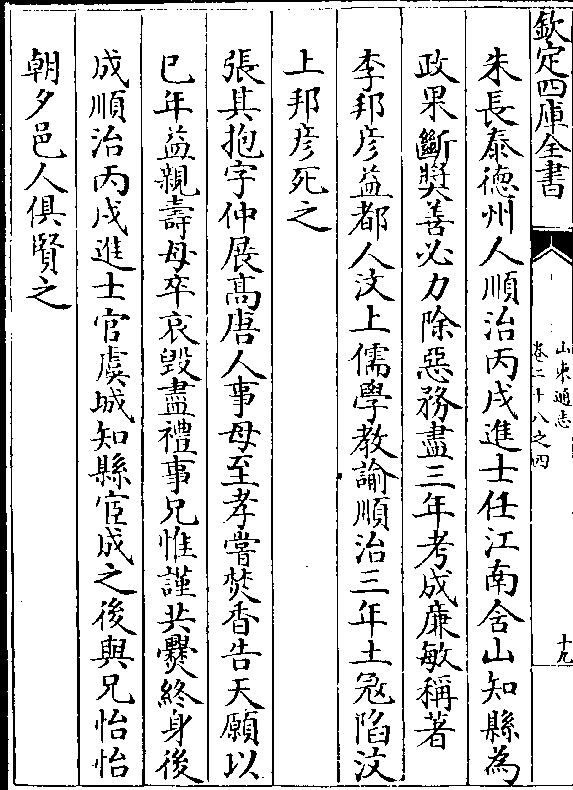 欽定四庫全書
山東通志
卷二十八之四
十九
朱長泰德州人順治丙戌進士任江南含山知縣為
政果斷奬善必力除惡務盡三年考成廉敏稱著
李邦彦益都人汶上儒學教諭順治三年土冦陷汶
上邦彦死之
張其抱字仲展高唐人事母至孝嘗焚香告天願以
已年益親壽母卒哀毀盡禮事兄惟謹共爨終身後
成順治丙戌進士官虞城知縣宦成之後與兄怡怡
朝夕邑人俱賢之